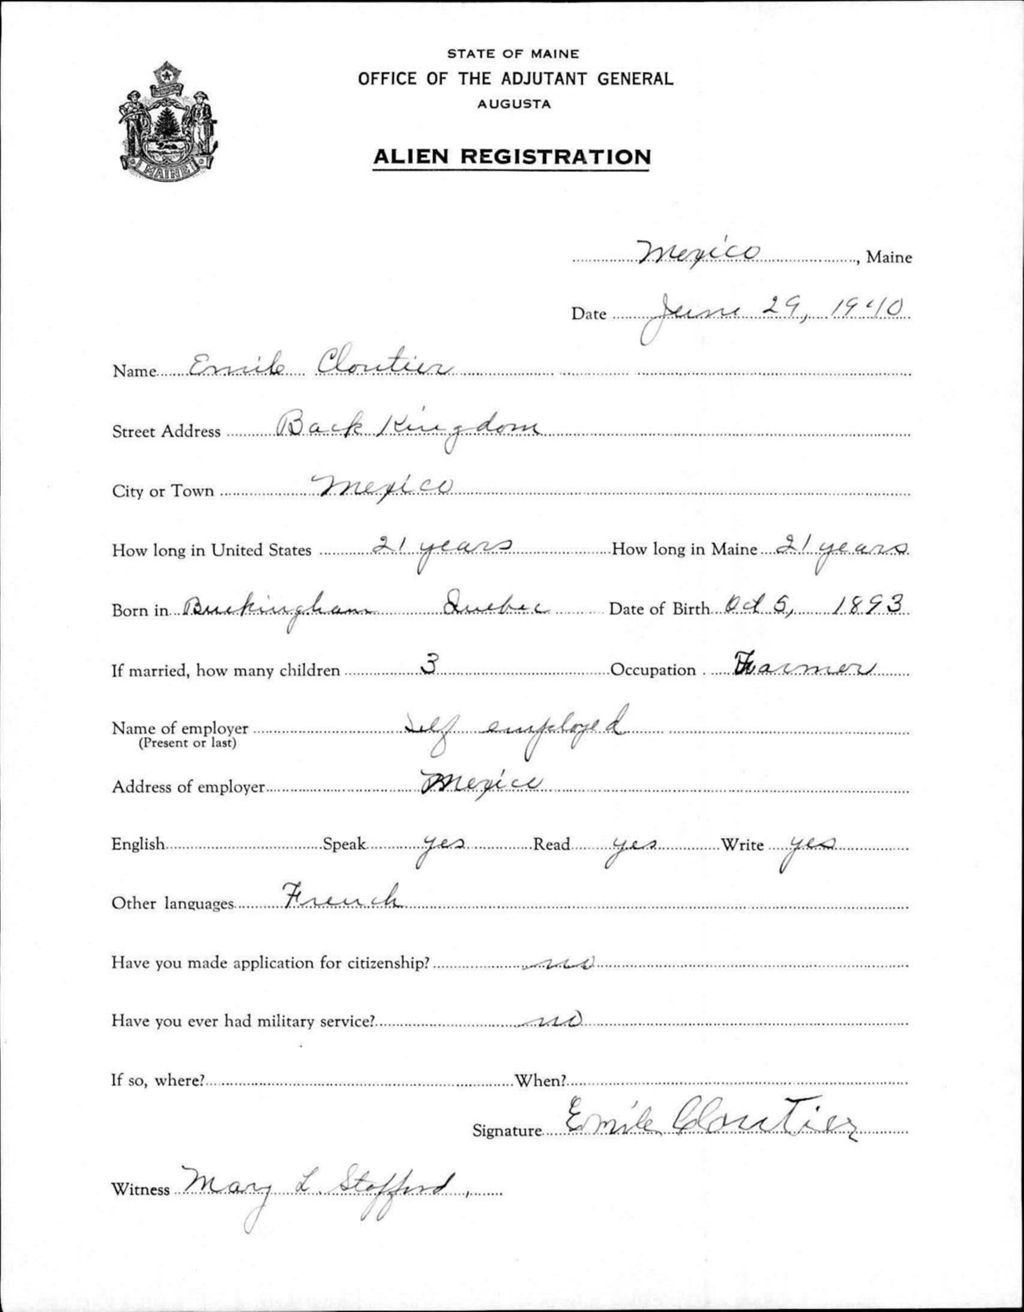 STATE OF MAINE
OFFICE OF THE ADJUTANT GENERAL
AUGUSTA
ALIEN REGISTRATION
MAINE
Mexico, Maine
Date June 29, 1940
Name Emile Cloutier
Street Address Back Kingdom
City or Town Mexico
How long in United States 21 years How long in Maine 21 years
Born in Buckingham Quebec Date of Birth Oct 5, 1893
If married, how many children 3 Occupation Farmer
Name of employer Self employed
(Present or last)
Address of employer Mexico
English Speak yes Read yes Write yes
Other languages French
Have you made application for citizenship? no
Have you ever had military service? no
If so, where? When?
Signature Emile Cloutier
Witness Mary L. Stafford,